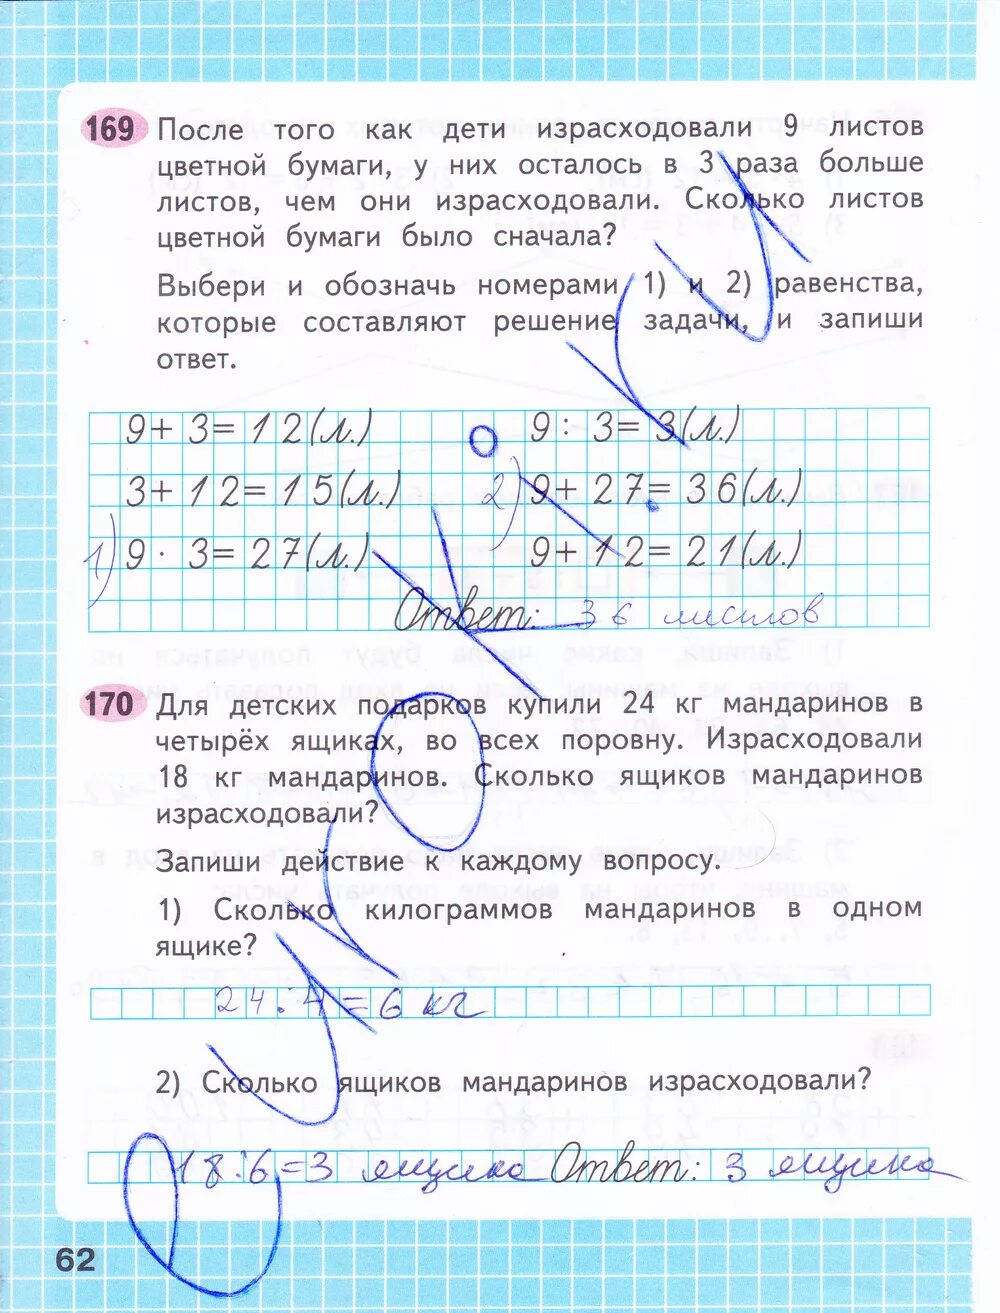 169 После того как дети израсходовали 9 листов
цветной бумаги, у них осталось в 3 раза больше
листов, чем они израсходовали. Сколько листов
цветной бумаги было сначала?
Выбери и обозначь номерами 1) и 2) равенства,
которые составляют решение задачи, и запиши
ответ.
9 + 3 = 12 (л.) 9 : 3 = 3 (л.)
3 + 12 = 15 (л.) 2) 9 + 27 = 36 (л.)
1) 9 · 3 = 27 (л.) 9 + 12 = 21 (л.)
Ответ: 36 листов
170 Для детских подарков купили 24 кг мандаринов в
четырёх ящиках, во всех поровну. Израсходовали
18 кг мандаринов. Сколько ящиков мандаринов
израсходовали?
Запиши действие к каждому вопросу.
1) Сколько килограммов мандаринов в одном
ящике?
24 : 4 = 6 кг
2) Сколько ящиков мандаринов израсходовали?
18 : 6 = 3 ящика Ответ: 3 ящика
62